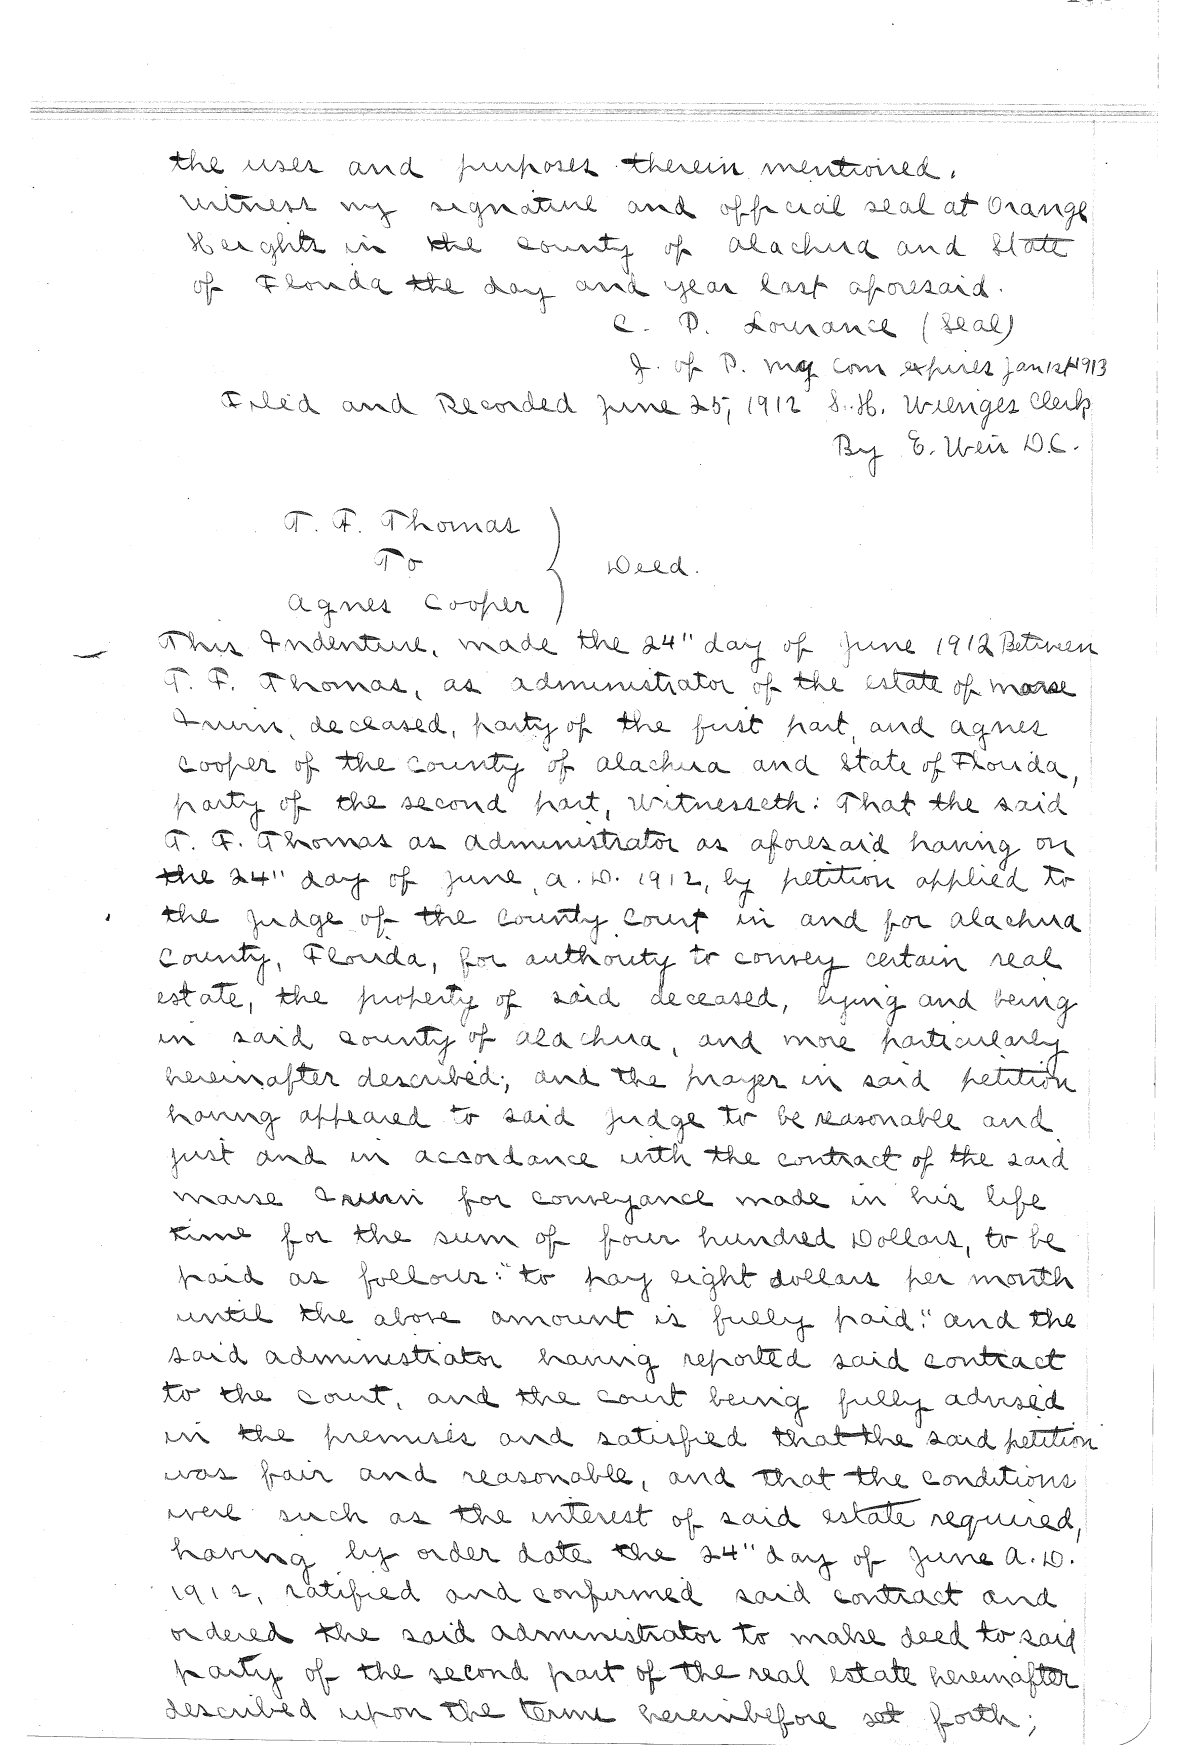 the uses and purposes therein mentioned.
Witness my signature and official seal at Orange
Heights in the County of Alachua and State
of Florida the day and year last aforesaid.
C. P. Lourance (Seal)
J. of P. my com expires Jan 1st 1913
Filed and Recorded June 25, 1912 S. H. Wienges Clerk
By E. Weir D.C.
T. F. Thomas
To
Deed.
Agnes Cooper
This Indenture, made the 24" day of June 1912 Between
T. F. Thomas, as administrator of the estate of
deceased, party of the first part, and Agnes
Cooper of the County of Alachua and State of Florida,
party of the second part, Witnesseth: That the said
T. F. Thomas as administrator as aforesaid having on
the 24" day of June, A.D. 1912, by petition applied to
the judge of the County Court in and for Alachua
County, Florida, for authority to convey certain real
estate, the property of said deceased, lying and being
in said County of Alachua, and more particularly
hereinafter described; and the prayer in said petition
having appeared to said judge to be reasonable and
just and in accordance with the contract of the said
for conveyance made in his life
time for the sum of four hundred Dollars, to be
paid as follows: "to pay eight dollars per month
until the above amount is fully paid." and the
said administrator having reported said contract
to the court, and the court being fully advised
in the premises and satisfied that the said petition
was fair and reasonable, and that the conditions
were such as the interest of said estate required,
having by order date the 24" day of June A.D.
1912, ratified and confirmed said contract and
ordered the said administrator to make deed to said
party of the second part of the real estate hereinafter
described upon the terms hereinbefore set forth;